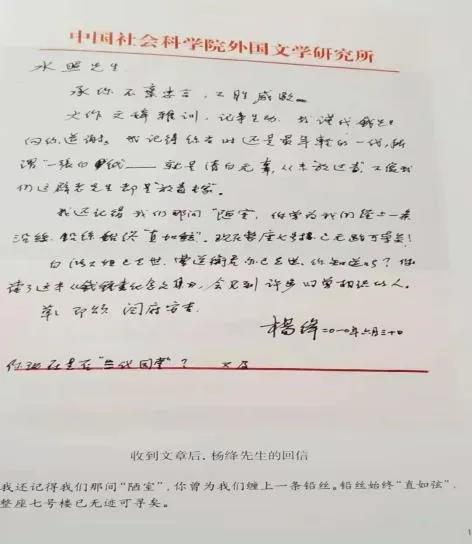 中国社会科学院外国文学研究所
水照先生
承你不弃 不胜感愧。
大作文辞雅训，记事生动，我谨代钱先生
向你道谢。我记得你当时还是最年轻的一代，所
谓"一张白纸——就是清白无辜，从未放过毒，不像我
们这辈老先生都是"放毒家"。
我还记得我们那间"陋室"，你曾为我们缠上一条
铅丝，铅丝始终"直如弦"。现在整座七号楼已无迹可寻矣！
已去世，曹道衡君亦已去世，你知道吗？你
读了这本《钱锺书纪念文集》，会见到许多似曾相识的人。
草此 即颂 阖府安吉
杨绛 二〇一〇年六月三十日
你现在是否"当代国学"？ 又及
收到文章后，杨绛先生的回信
我还记得我们那间"陋室"，你曾为我们缠上一条铅丝。铅丝始终"直如弦"，
整座七号楼已无迹可寻矣。